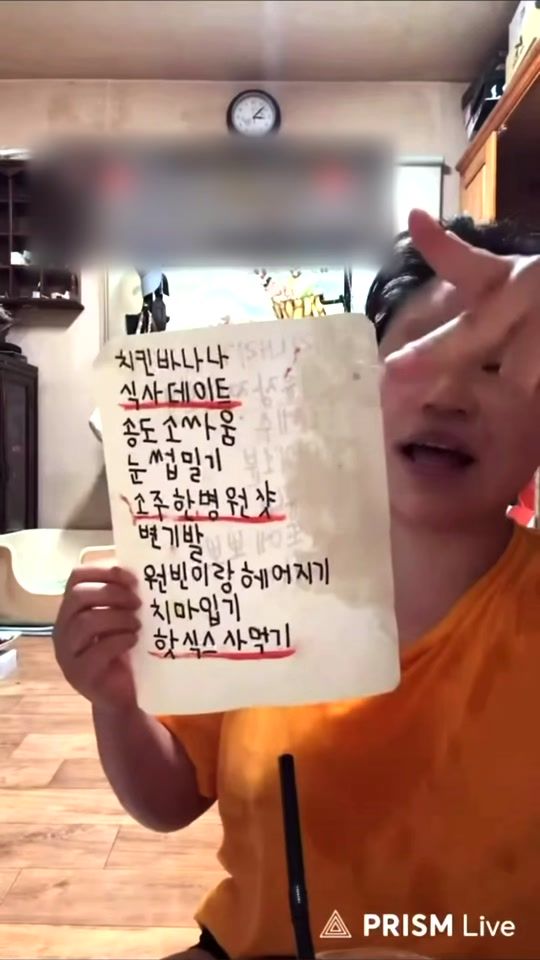 치킨바나나
식사데이트
송도 소싸움
눈썹밀기
소주한병원샷
변기발
원빈이랑헤어지기
치마입기
핫식스사먹기
PRISM Live